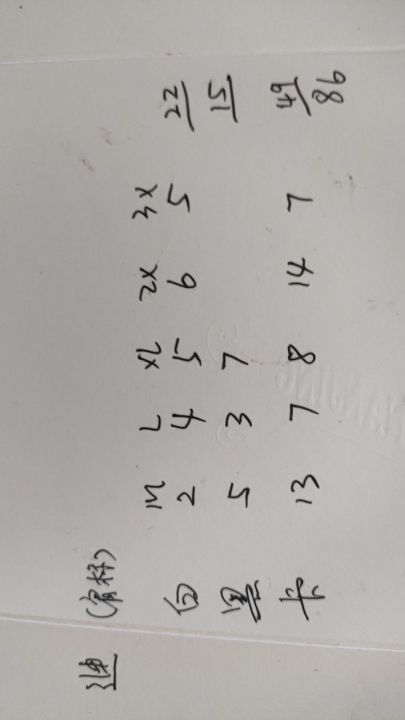 M L XL 2X 3X
白 2 4 5 6 5 22
黑 5 3 7 15
13 7 8 14 7 49
86